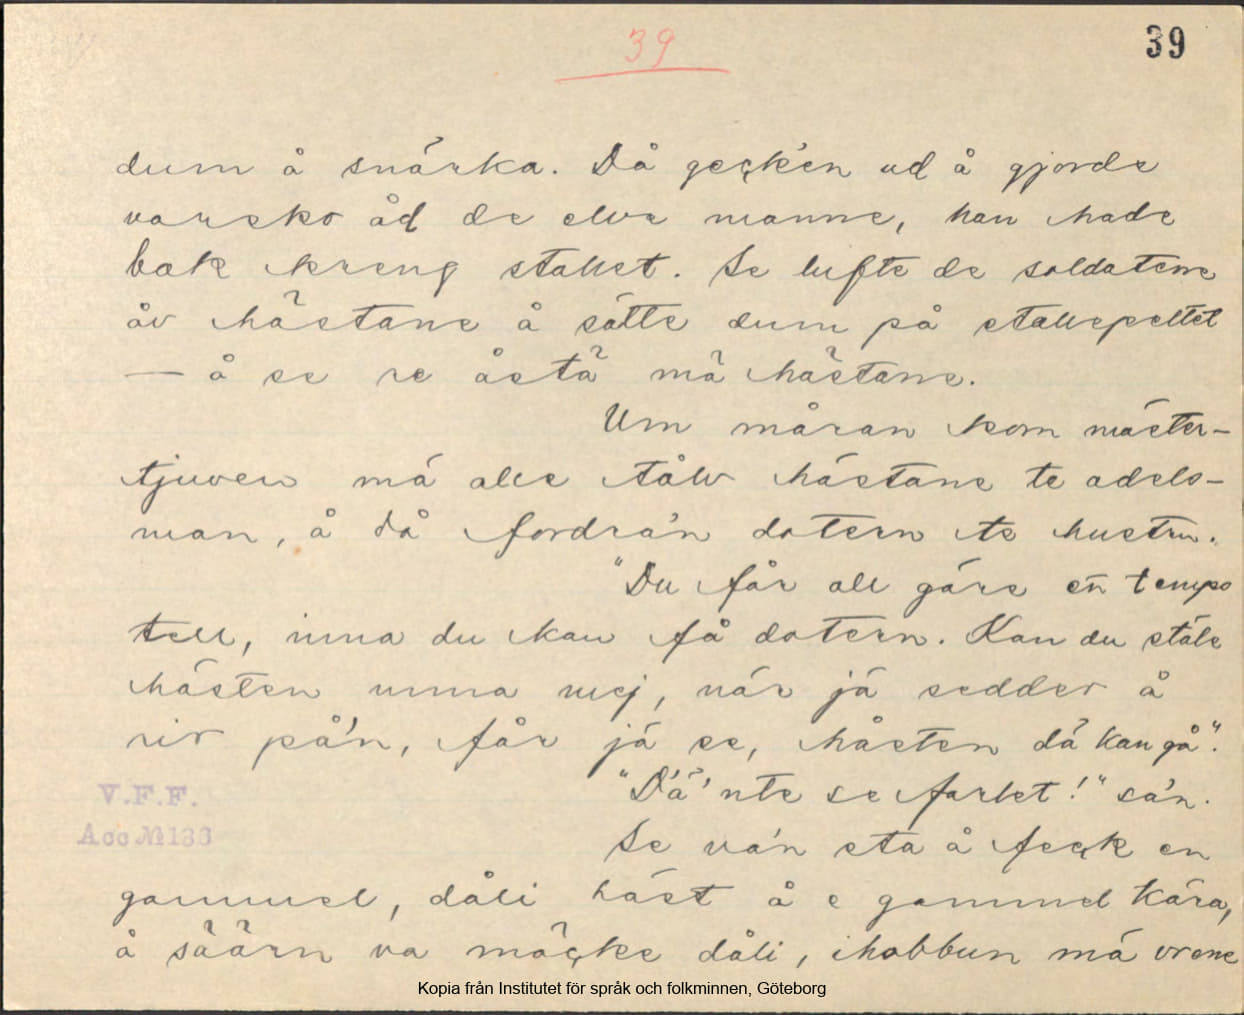 39
39
dum å snärka. Då geck'en ud å gjorde
varsko åd de elve manne, han hade
bak kreng stallet. Se lufte de soldatene
åv hästane å sätte dum på stallepellet
— å se re åstä mä hästane.
Um måran kom mäster-
tjuven mä alle tålv hästane te adels-
man, å då fordra'n dotern te hustru.
"Du får all gäre en tempo
tell, inna du kan få dotern. Kan du stäle
hästen unna mej, när jä sedder å
rir på'n, får jä se, håsten dä kan gå".
"D'ä'nte se farlet!" sa'n.
Se va'n sta å feck en
gammel, dåli häst å e gammel kära,
å säärn va mäcke dåli, ihobbun mä vrene
V.F.F.
Acc № 133
Kopia från Institutet för språk och folkminnen, Göteborg